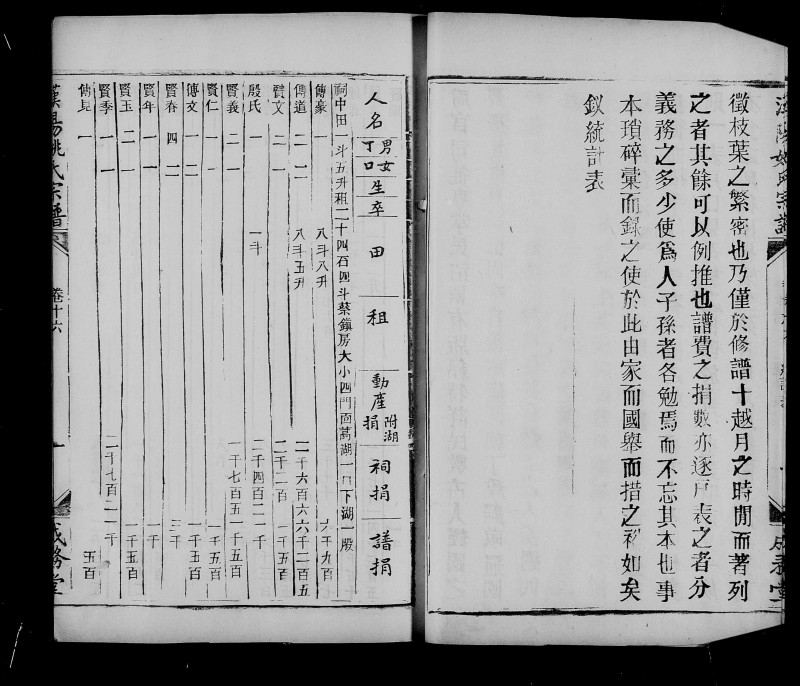 徵枝葉之繁密也乃僅於修譜十越月之時閒而著列
之者其餘可以例推也譜費之捐數亦逐戶表之者分
義務之多少使爲人子孫者各勉焉而不忘其本也事
本瑣碎彙而錄之使於此由家而國舉而措之裕如矣
敘統計表
人名 男女丁口 生卒 田 租 動產捐 附湖 祠捐 譜捐
祠中田一斗五升租二十四石四斗蔡鎭房大小四門面蒿湖一口下湖一股
傳豪 一 八斗八升 六千九百
傳道 二 一 八斗五升 二千六百六六千二百五
賢文 二 一 二千二百 一千五百
殷氏 一 一斗 二千四百二一千
賢義 二 一 一千七百五一千五百
賢仁 一 一 一千五百
傳文 一 一 一千五百
賢春 四 二 三千
賢年 一 一 一千
賢玉 二 一 一千五百
賢季 一 一 二千七百二一千
傳見 一 五百
漢陽姚氏宗譜 卷十六 一